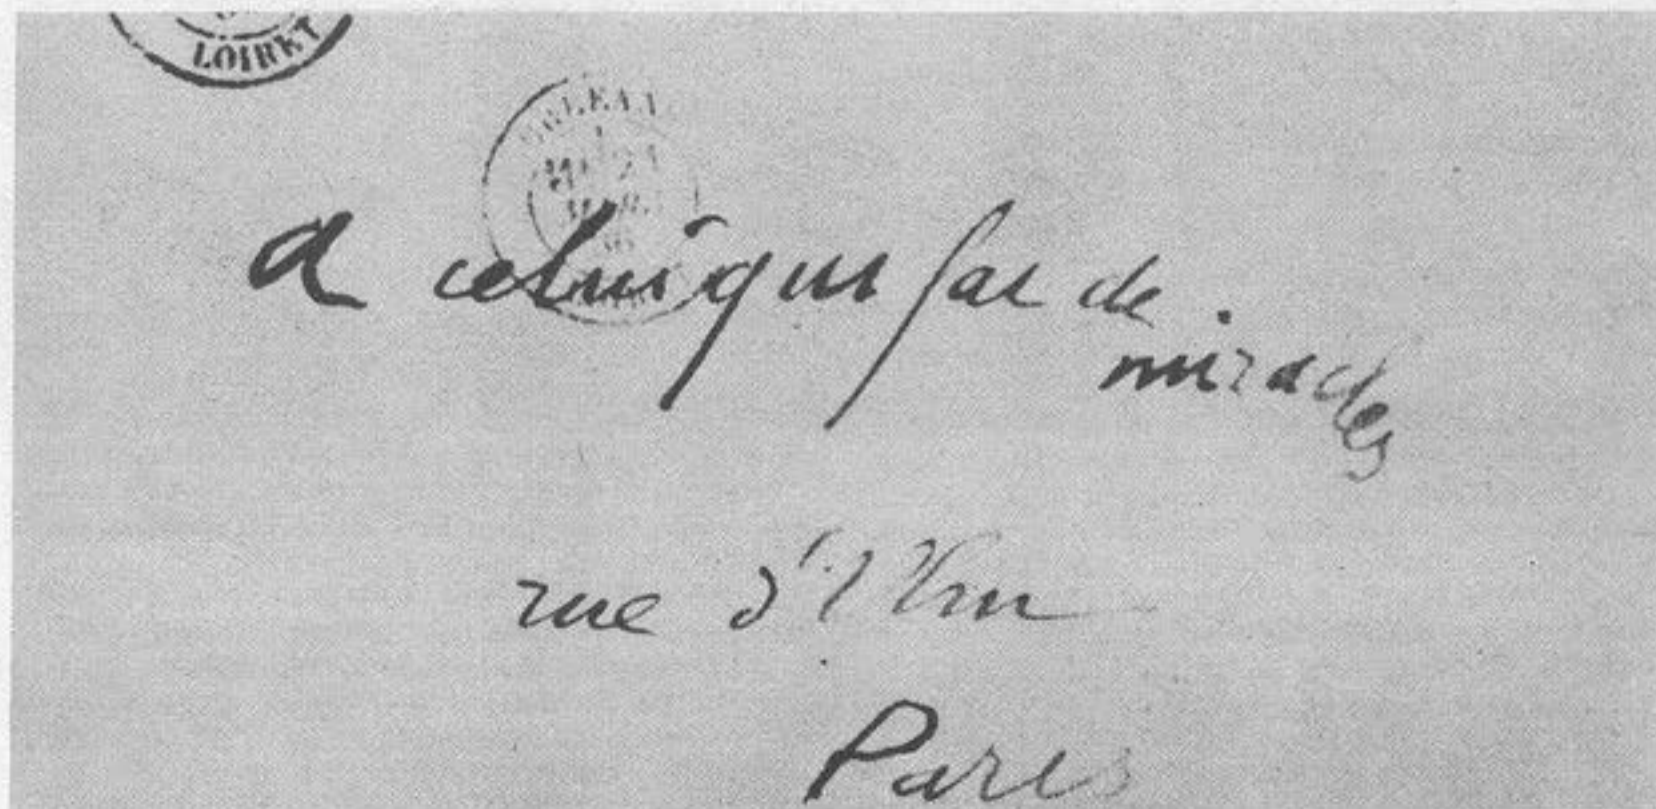 LOIRET
ORLEANS
a celui qui fai de
miracles
rue d'Ulm
Paris